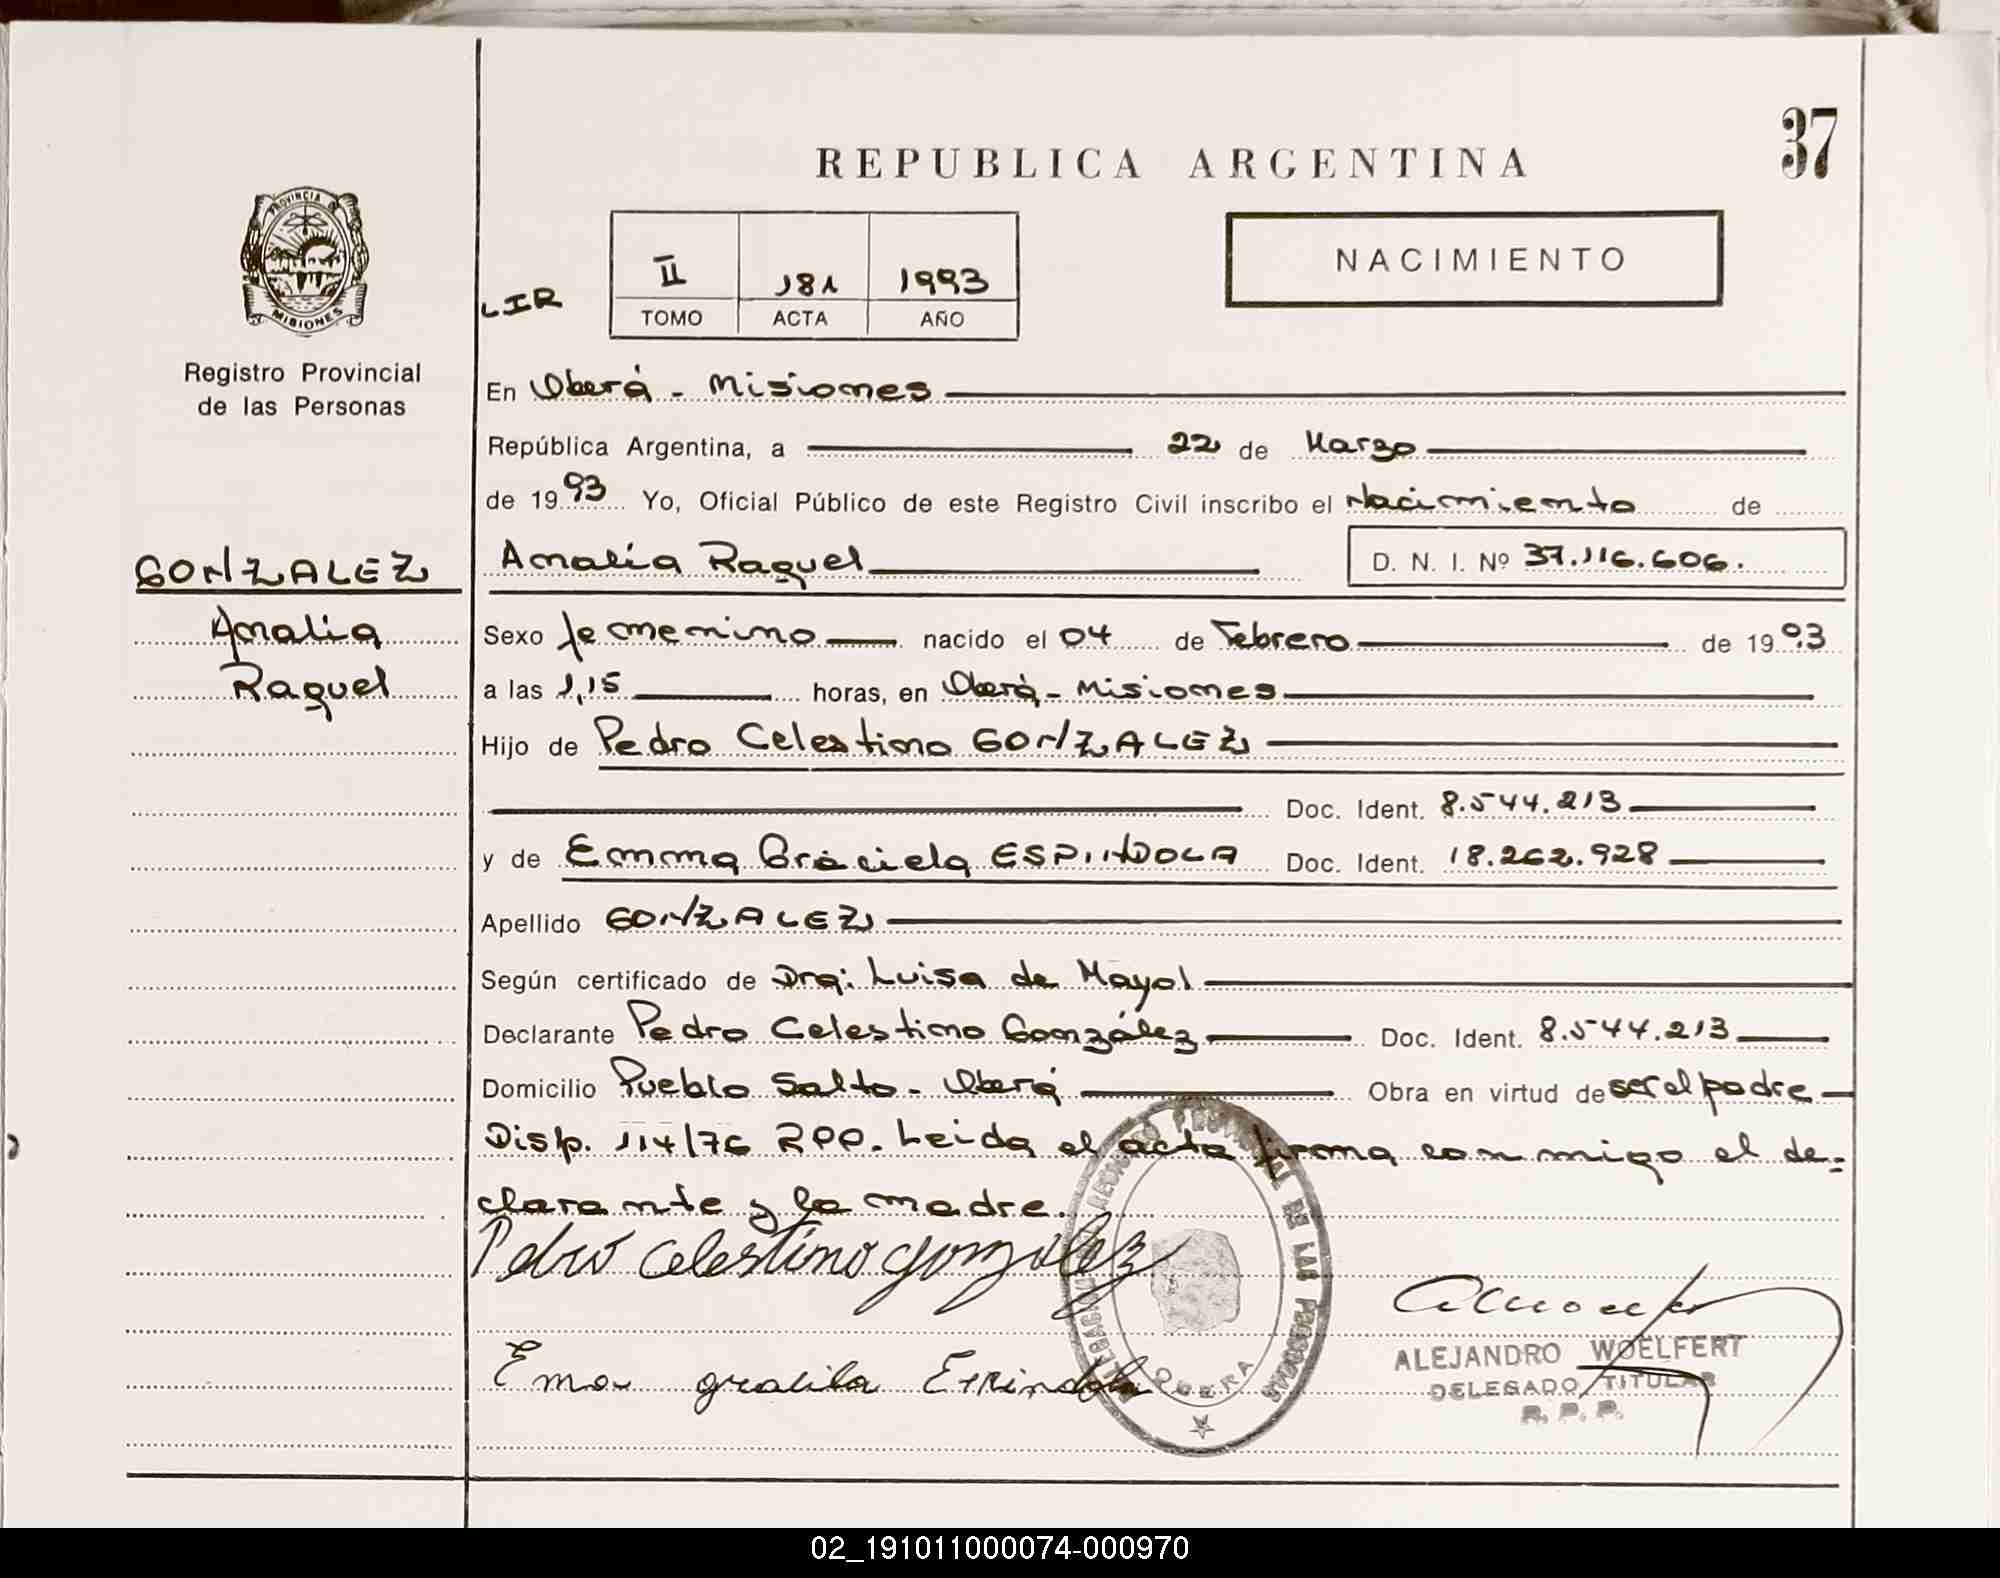 37
REPUBLICA ARGENTINA
PROVINCIA DE
MISIONES
Registro Provincial
de las Personas
LIR
II 181 1993
TOMO ACTA AÑO
NACIMIENTO
En Oberá - Misiones
República Argentina, a 22 de Marzo
de 1993 Yo, Oficial Público de este Registro Civil inscribo el Nacimiento de
GONZALEZ
Amalia
Raquel
Amalia Raquel D. N. I. Nº 37.116.606.
Sexo femenino nacido el 04 de Febrero de 1993
a las 1,15 horas, en Oberá - Misiones
Hijo de Pedro Celestino GONZALEZ
Doc. Ident. 8.544.213
y de Emma Graciela ESPINDOLA Doc. Ident. 18.262.928
Apellido GONZALEZ
Según certificado de Dra: Luisa de Mayol
Declarante Pedro Celestino González Doc. Ident. 8.544.213
Domicilio Pueblo Salto - Oberá Obra en virtud de ser el padre
Disp. 114/76 RPP. Leida el acta firma conmigo el de-
clarante y la madre.
Pedro Celestino Gonzalez
Ema graciela Espindola
REGISTRO PROVINCIAL DE LAS PERSONAS
OBERA
ALEJANDRO WOELFERT
DELEGADO TITULAR
R. P. P.
02_191011000074-000970